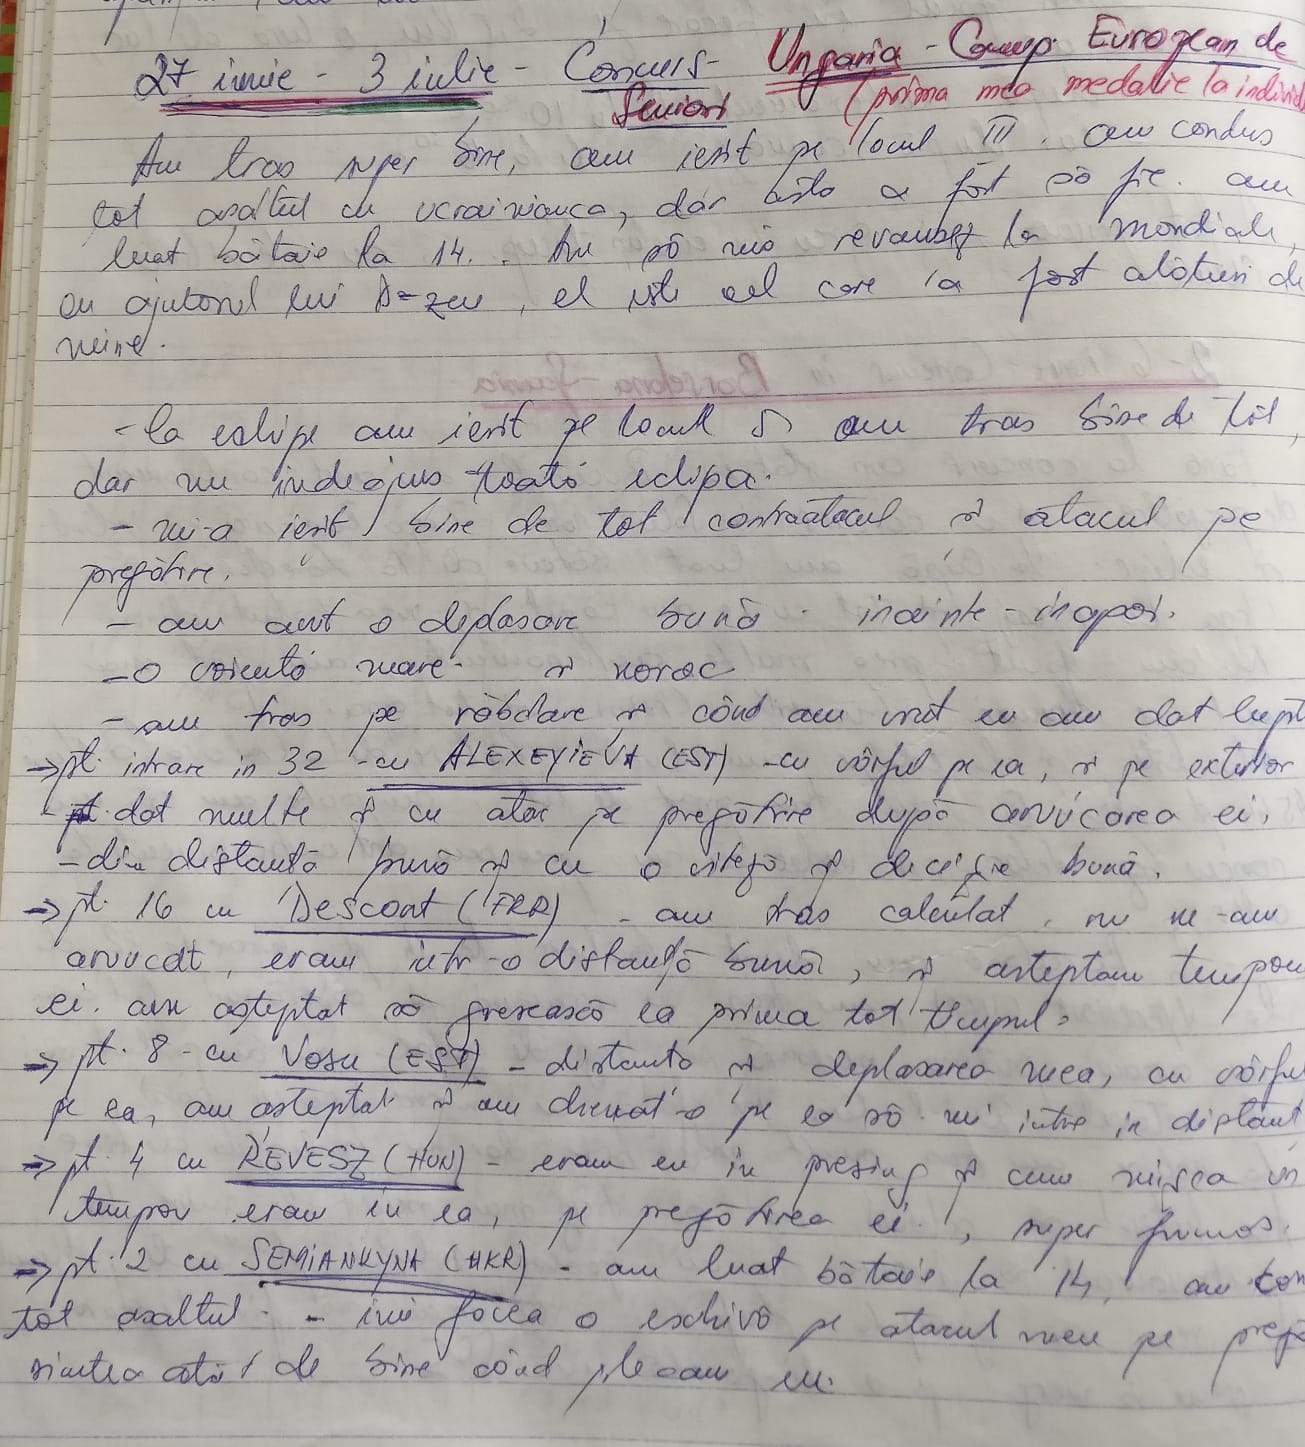 27 iunie - 3 iulie - Concurs - Ungaria - Camp. European de
Seniori (prima mea medalie la individ
Am tras super bine, am ieșit pe locul III. am condus
tot asaltul cu ucrainianca, dar asta a fost să fie. am
luat bătaie la 14. Am să mio revanșez la mondiale,
cu ajutorul lui D-zeu, el este cel care ia fost alături de
mine.
- la echipe am ieșit pe locul 5 am tras bine de tot,
dar nu indeajuns toată echipa.
- mi-a ieșit bine de tot contraatacul și atacul pe
pregătire.
- am avut o deplasare bună inainte - inapoi.
- O voientă mare și noroc
- am tras pe răbdare și când am vrut eu am dat lupt
→ pt. intrare in 32 - cu ALEXEYIEVA (EST) - cu vârful pe ea, și pe exterior
dat multe și cu atac pe pregătire după aruncarea ei.
- din distantă bună și cu o viteză și decizie bună.
→ pt. 16 cu Descont (FRA) - am tras calculat, nu m-am
aruncat, eram intr-o distanță bună, și asteptam tempou
ei. am așteptat să greșească ea prima tot timpul.
→ pt. 8 - cu Vosu (EST) - distanta și deplasarea mea, cu vârfu
pe ea, am așteptat și am chemat-o pe ea să mi intre in distant
→ pt. 4 cu REVESZ (HUN) - eram eu in presing și cum mișca in
tempou eram in ea, pe pregătirea ei, super frumos.
→ pt. 2 cu SEMIANKYNA (UKR) - am luat bătaie la 14, am con
tot asaltul. - imi făcea o eschivă pe atacul meu pe pregă
simtea atât de bine când plecam eu.